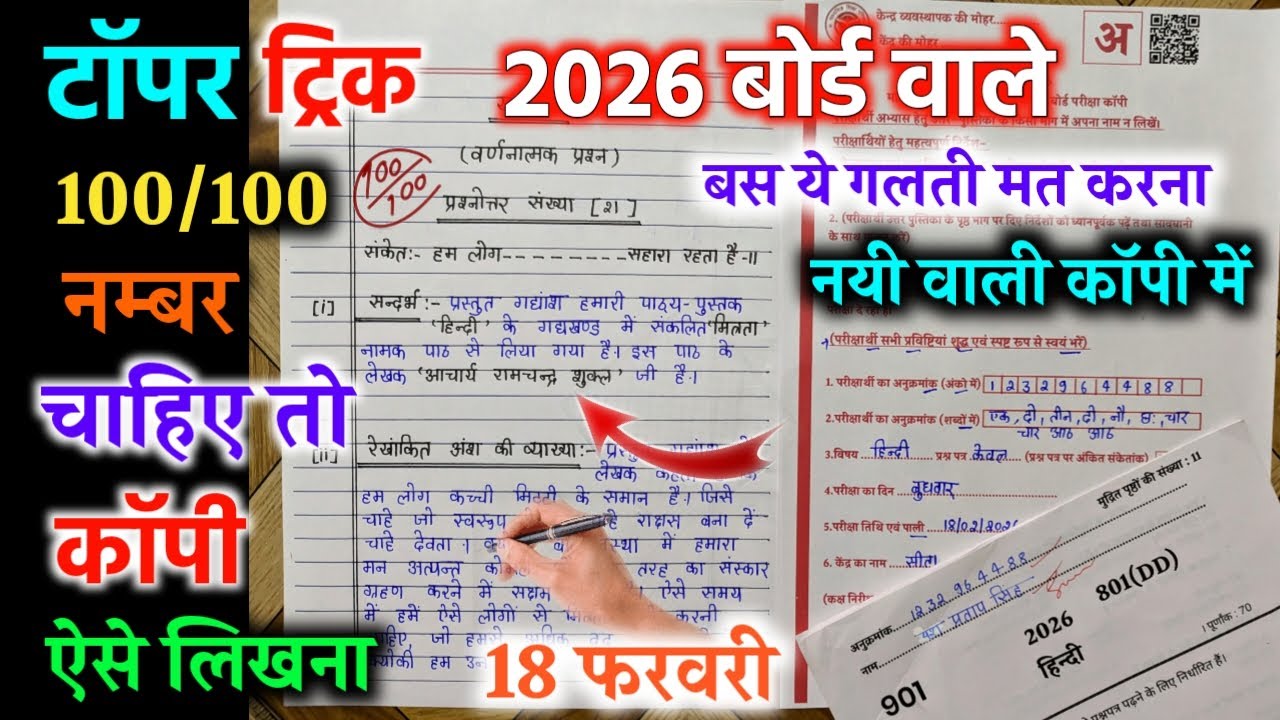 टॉपर ट्रिक
100/100
नम्बर
चाहिए तो
कॉपी
ऐसे लिखना
2026 बोर्ड वाले
बस ये गलती मत करना
नयी वाली कॉपी में
18 फरवरी
(वर्णनात्मक प्रश्न)
100/100
प्रश्नोत्तर संख्या [2]
संकेत:- हम लोग--------सहारा रहता है॥
[i] सन्दर्भ:- प्रस्तुत गद्यांश हमारी पाठ्य-पुस्तक
'हिन्दी' के गद्यखण्ड में संकलित 'मित्रता'
नामक पाठ से लिया गया है। इस पाठ के
लेखक 'आचार्य रामचन्द्र शुक्ल' जी है।
[ii] रेखांकित अंश की व्याख्या:-
लेखक कहता
हम लोग कच्ची मिट्टी के समान है। जिसे
चाहे जो स्वरूप राक्षस बना दें
चाहे देवता। में हमारा
मन अत्यन्त तरह का संस्कार
ग्रहण करने में सक्षम ऐसे समय
में हमें ऐसे लोगों से करनी
चाहिए, जो हमसे
क्योकी हम
केन्द्र व्यवस्थापक की मोहर
केंद्र की मोहर
अ
बोर्ड परीक्षा कॉपी
में अपना नाम न लिखें।
परीक्षार्थियों हेतु महत्वपूर्ण
2. (परीक्षार्थी उत्तर पुस्तिका के पृष्ठ भाग पर दिए निर्देशों को ध्यानपूर्वक पढ़ें तथा सावधानी
के साथ
(परीक्षार्थी सभी प्रविष्टियां शुद्ध एवं स्पष्ट रूप से स्वयं भरें)
1. परीक्षार्थी का अनुक्रमांक (अंको में) 1232964488
2.परीक्षार्थी का अनुक्रमांक (शब्दों में) एक, दो, तीन, दो, नौ, छः, चार
चार आठ आठ
3.विषय हिन्दी प्रश्न पत्र केवल (प्रश्न पत्र पर अंकित संकेतांक)
4.परीक्षा का दिन बुधवार
5.परीक्षा तिथि एवं पाली 18/02/2026
6. केंद्र का नाम सीता
(कक्ष
मुद्रित पृष्ठों की संख्या : 11
अनुक्रमांक 1232964488
नाम प्रताप सिंह
901
2026
हिन्दी
801(DD)
। पूर्णांक : 70
प्रश्नपत्र पढ़ने के लिए निर्धारित हैं।